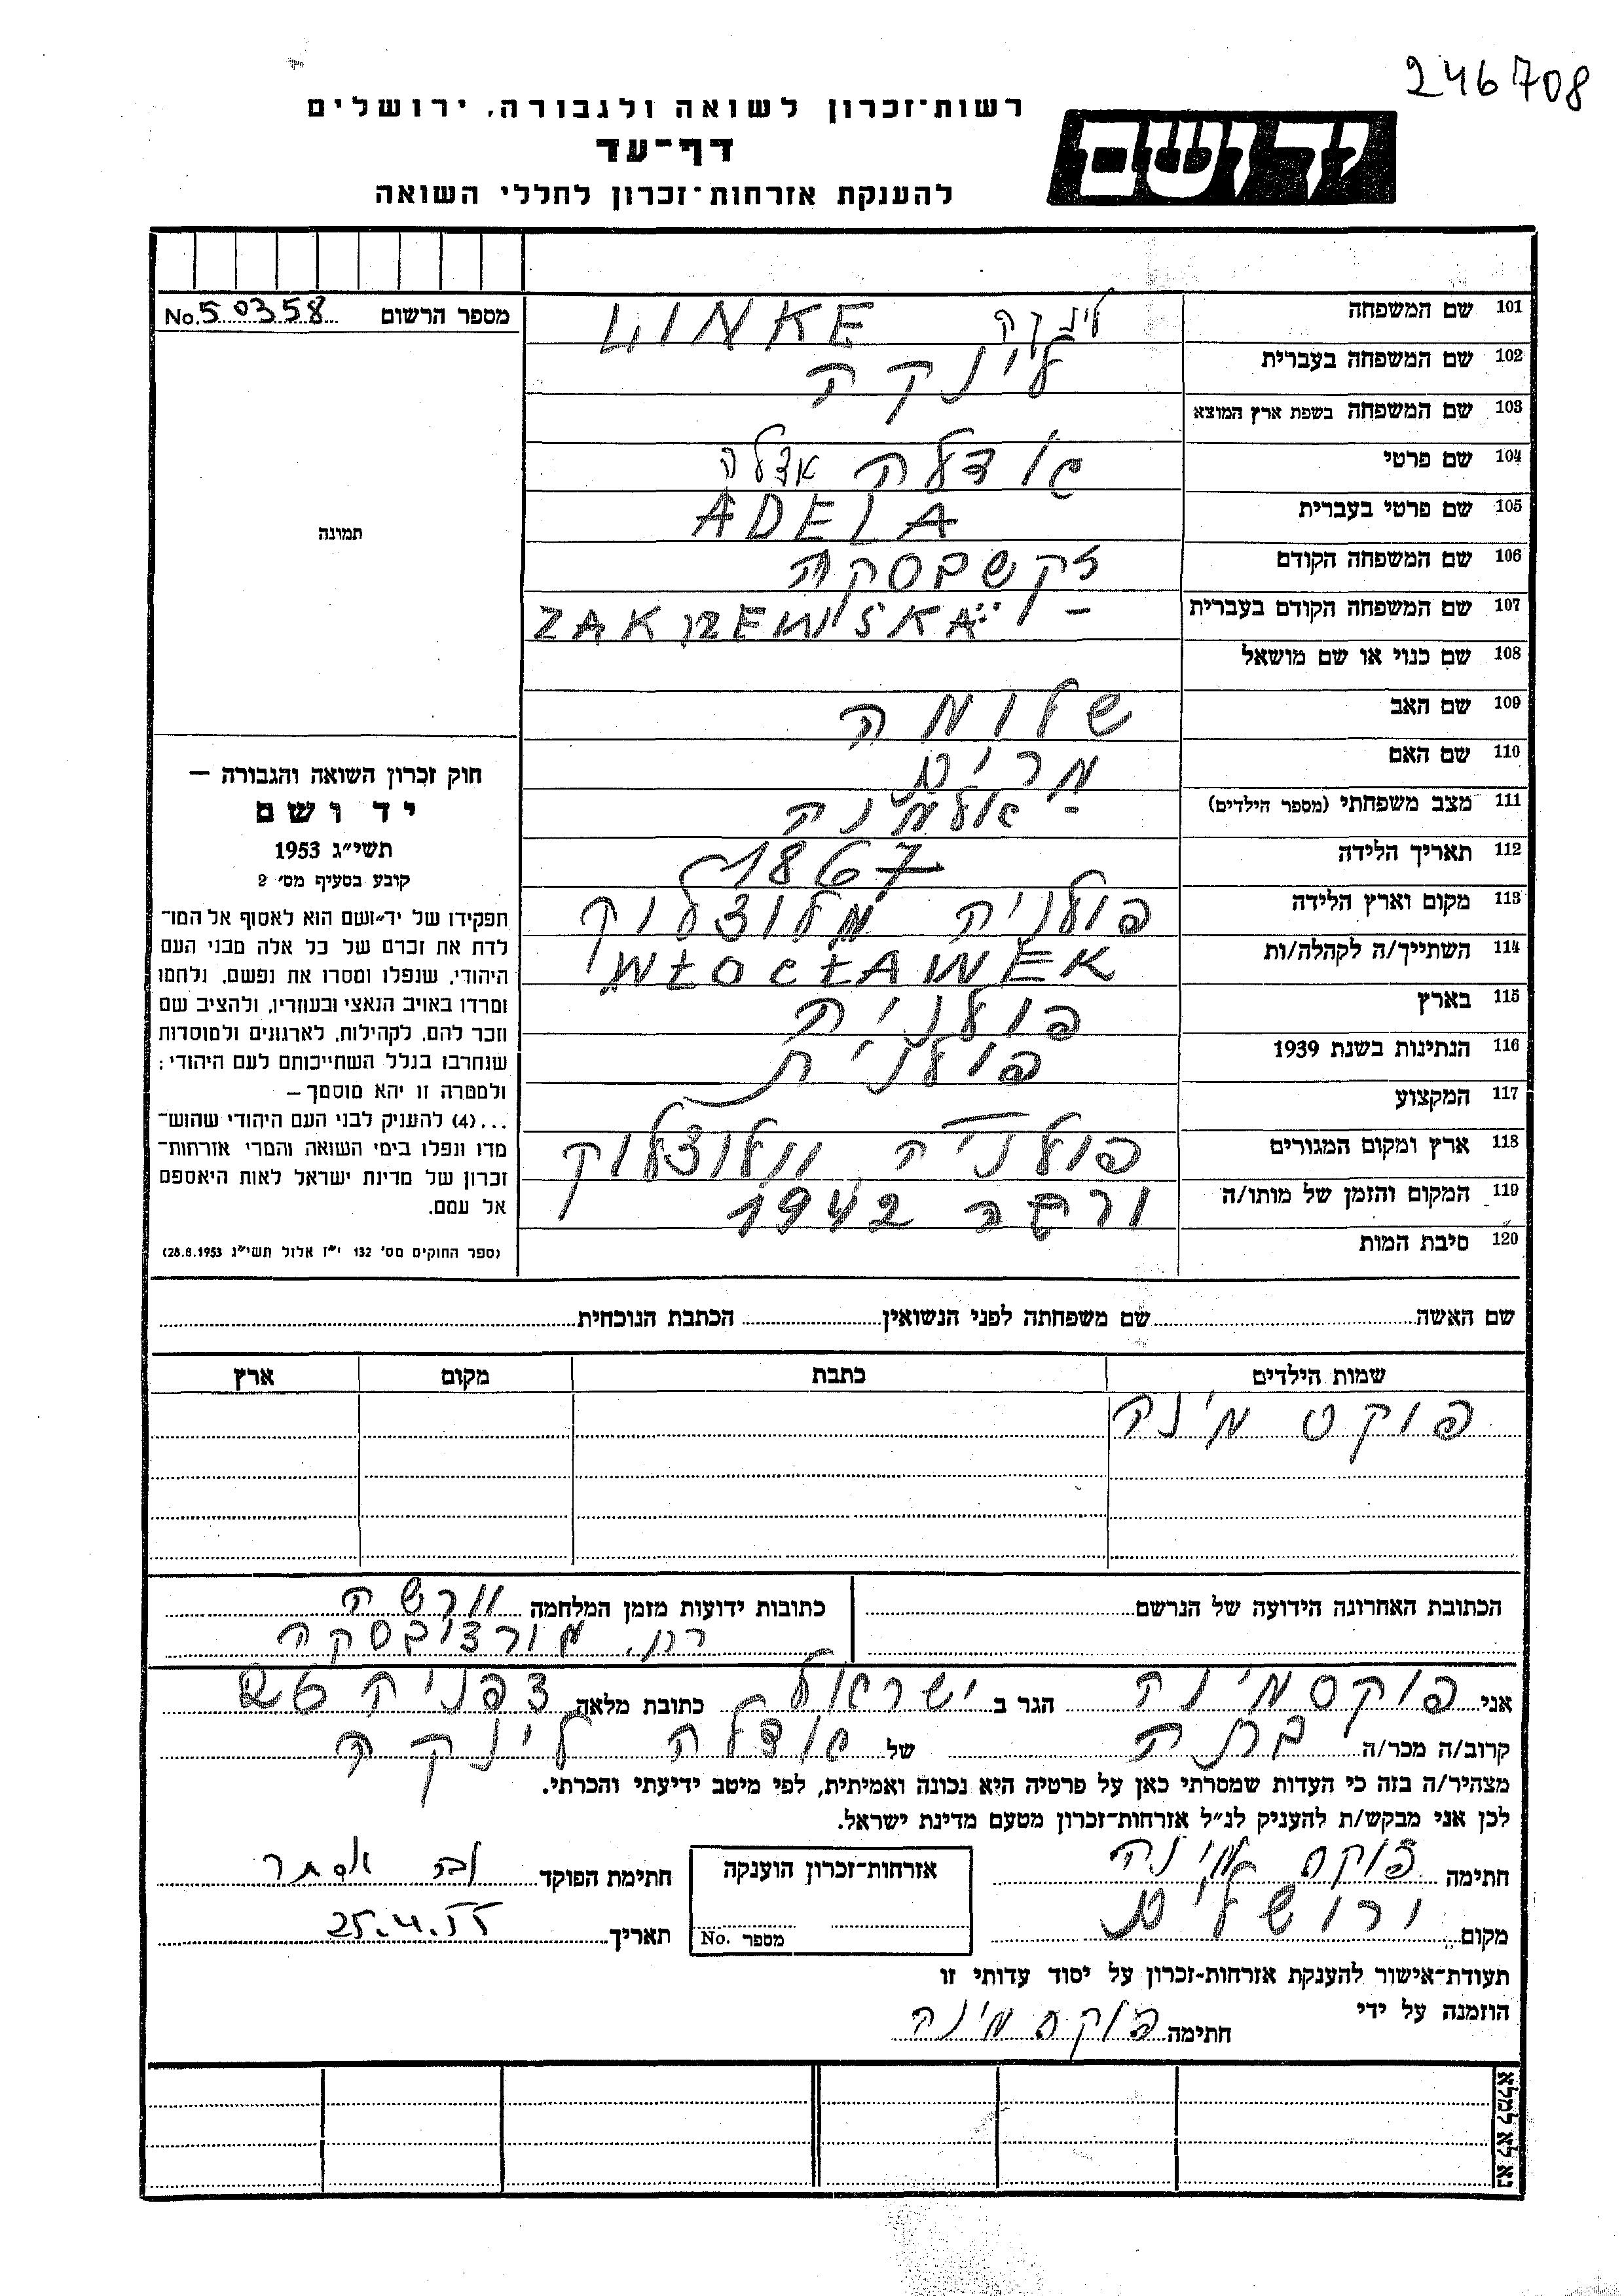 246708
רשות־זכרון לשואה ולגבורה, ירושלים
דף־עד
להענקת אזרחות־זכרון לחללי השואה
יד ושם
מספר הרשום No. 50358
תמונה
101 שם המשפחה לינקה LINKE
102 שם המשפחה בעברית לינקה
103 שם המשפחה בשפת ארץ המוצא
104 שם פרטי אדלה אדלה
105 שם פרטי בעברית ADELA
106 שם המשפחה הקודם זקשבסקה
107 שם המשפחה הקודם בעברית ZAKRZEWSKA
108 שם כנוי או שם מושאל
109 שם האב שלומה
110 שם האם מרים
111 מצב משפחתי (מספר הילדים) אלמנה
112 תאריך הלידה 1867
113 מקום וארץ הלידה פולניה
114 השתייך/ה לקהלה/ות WŁOCŁAWEK
115 בארץ פולניה
116 הנתינות בשנת 1939 פולנית
117 המקצוע
118 ארץ ומקום המגורים פולניה וולוצלוק
119 המקום והזמן של מותו/ה ורשה 1942
120 סיבת המות
חוק זכרון השואה והגבורה —
יד ושם
תשי״ג 1953
קובע בסעיף מס׳ 2
תפקידו של יד־ושם הוא לאסוף אל המו־
לדת את זכרם של כל אלה מבני העם
היהודי, שנפלו ומסרו את נפשם, נלחמו
ומרדו באויב הנאצי ובעוזריו, ולהציב שם
וזכר להם, לקהילות, לארגונים ולמוסדות
שנחרבו בגלל השתייכותם לעם היהודי;
ולמטרה זו יהא מוסמך—
...(4) להעניק לבני העם היהודי שהוש־
מדו ונפלו בימי השואה והמרי אזרחות־
זכרון של מדינת ישראל לאות היאספם
אל עמם.
(ספר החוקים מס׳ 132 י״ז אלול תשי״ג 28.8.1953)
שם האשה שם משפחתה לפני הנשואין הכתבת הנוכחית
שמות הילדים כתבת מקום ארץ
פוקס מינה
הכתובת האחרונה הידועה של הנרשם
כתובות ידועות מזמן המלחמה וורשה
רח.
אני פוקס מינה הגר ב ישראל כתובת מלאה צפניה 26
קרוב/ה מכר/ה בתה של אדלה לינקה
מצהיר/ה בזה כי העדות שמסרתי כאן על פרטיה היא נכונה ואמיתית, לפי מיטב ידיעתי והכרתי.
לכן אני מבקש/ת להעניק לנ״ל אזרחות־זכרון מטעם מדינת ישראל.
חתימה פוקס מינה
מקום ירושלים
אזרחות־זכרון הוענקה
מספר No.
חתימת הפוקד אסתר
תאריך 25.4.55
תעודת־אישור להענקת אזרחות־זכרון על יסוד עדותי זו
הוזמנה על ידי
חתימה פוקס מינה
נא לא למלא